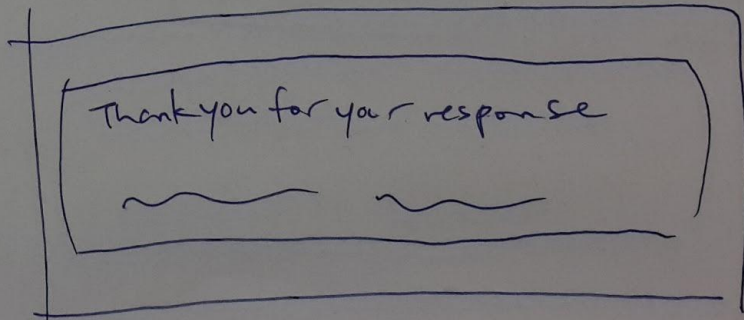 Thank you for your response